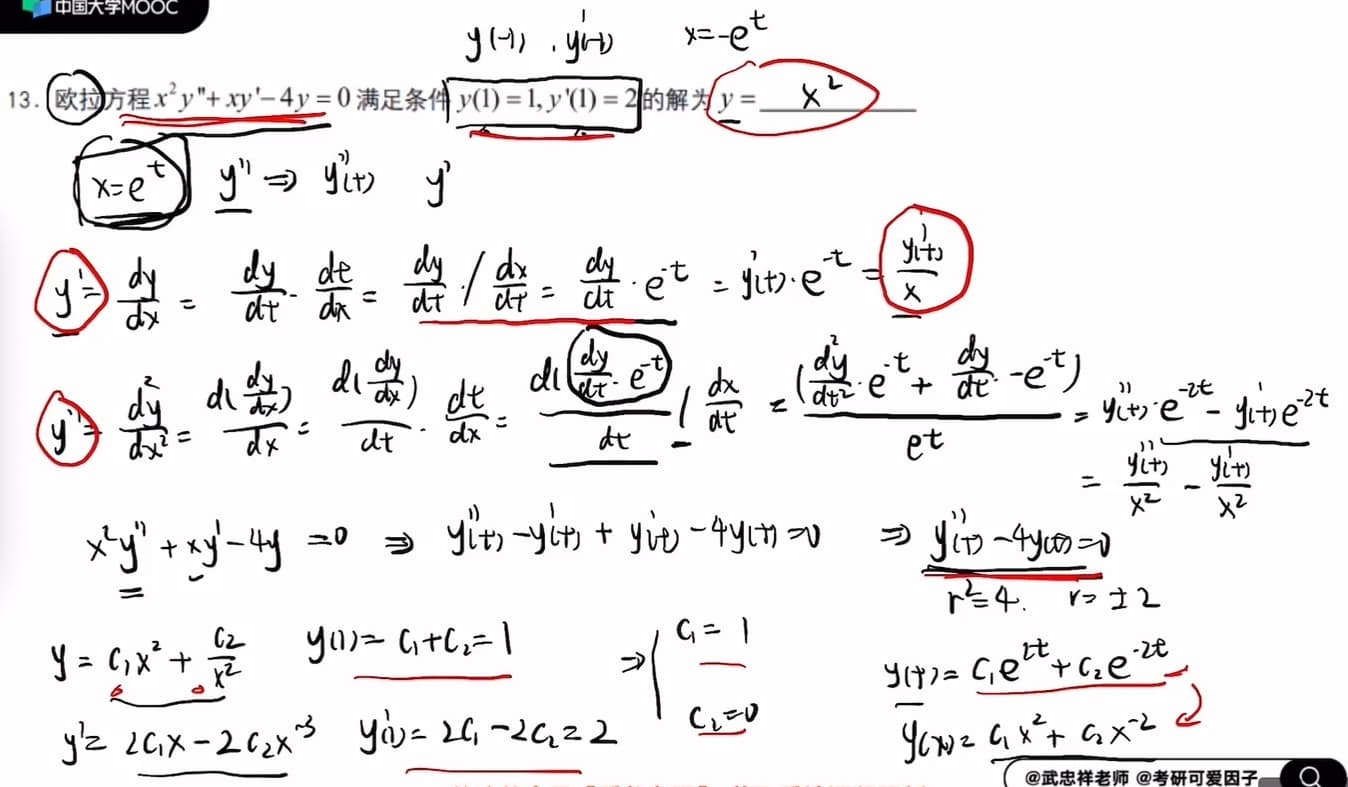 中国大学MOOC
y(-1), y'(-1) x=-e^t
13. 欧拉方程x²y''+xy'-4y=0满足条件y(1)=1,y'(1)=2的解为y=x²
x=e^t y'' ⇒ y''(t) y'
y'= dy/dx = dy/dt · dt/dx = dy/dt / dx/dt = dy/dt · e^-t = y'(t)·e^-t = y'(t)/x
y''= d²y/dx² = d(dy/dx)/dx = d(dy/dx)/dt · dt/dx = d(dy/dt · e^-t)/dt / dx/dt = (d²y/dt² · e^-t + dy/dt · -e^-t)/e^t = y''(t)·e^-2t - y'(t)e^-2t
= y''(t)/x² - y'(t)/x²
x²y''+xy'-4y=0 ⇒ y''(t)-y'(t)+y'(t)-4y(t)=0 ⇒ y''(t)-4y(t)=0
r²=4. r=±2
y=C₁x²+C₂/x² y(1)=C₁+C₂=1 ⇒ { C₁=1
y(t)=C₁e^2t+C₂e^-2t
y'=2C₁x-2C₂x^-3 y'(1)=2C₁-2C₂=2 C₂=0
y(x)=C₁x²+C₂x^-2
@武忠祥老师 @考研可爱因子